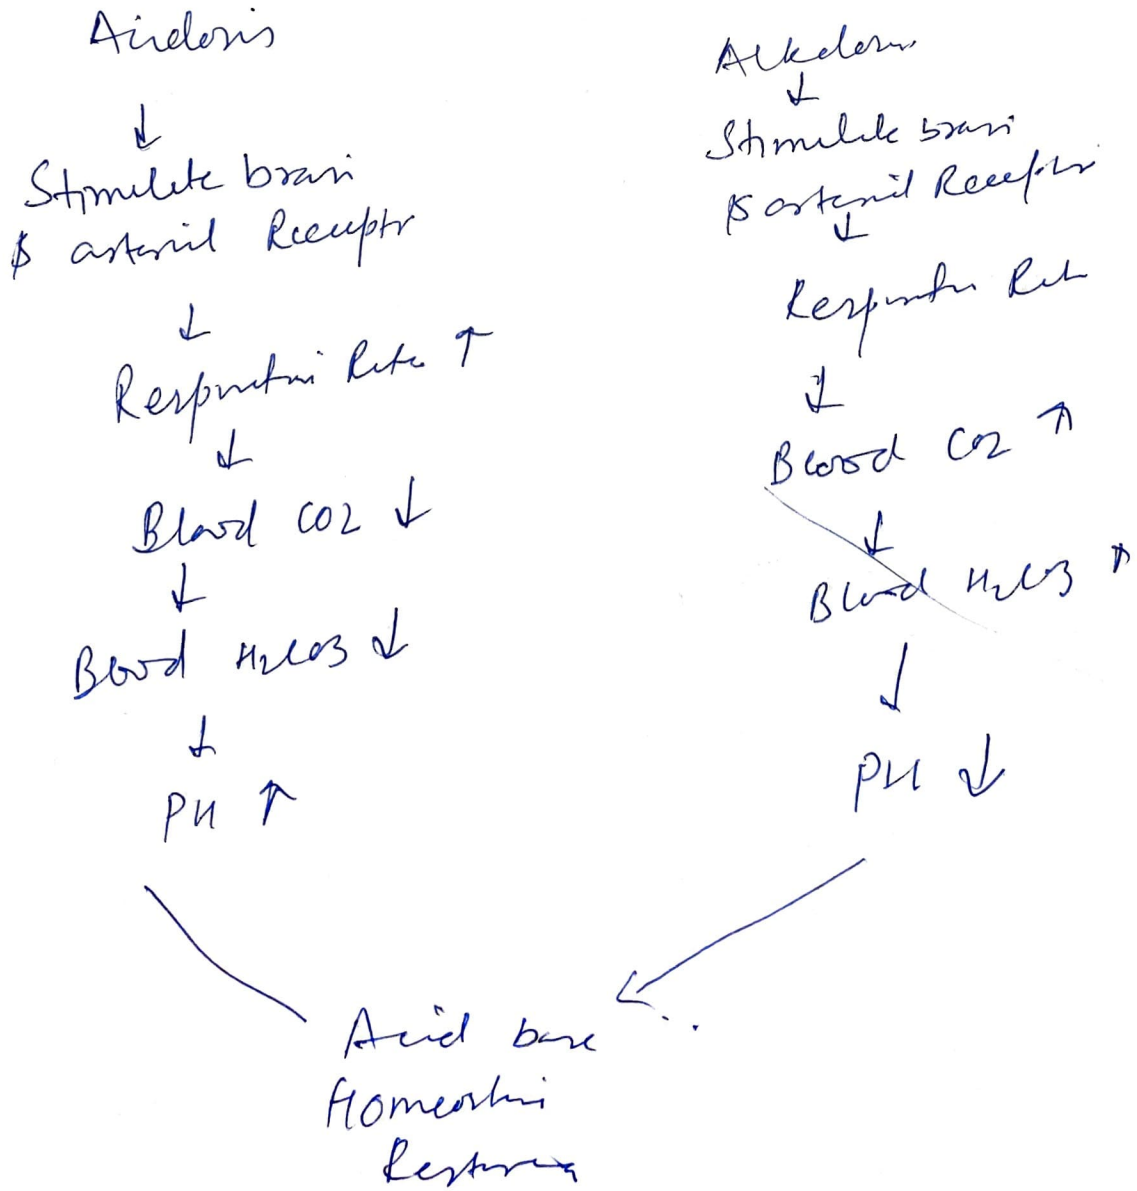 Acidosis
↓
Stimulate brain
& arterial Receptr
↓
Respiratori Rate ↑
↓
Blood CO2 ↓
↓
Blood H2CO3 ↓
↓
PH ↑
Alkalosis
↓
Stimulate brain
& arterial Receptr
↓
Respirator Rate
↓
Blood CO2 ↑
↓
Blood H2CO3 ↑
↓
PH ↓
Acid base
Homeostasi
Restoring